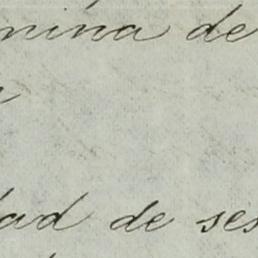 nina de
dad de ses